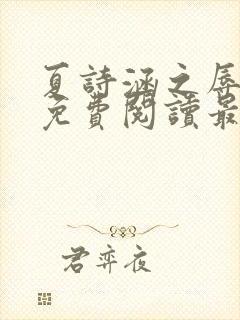 夏詩涵之辱
免費閱讀最
君弈夜